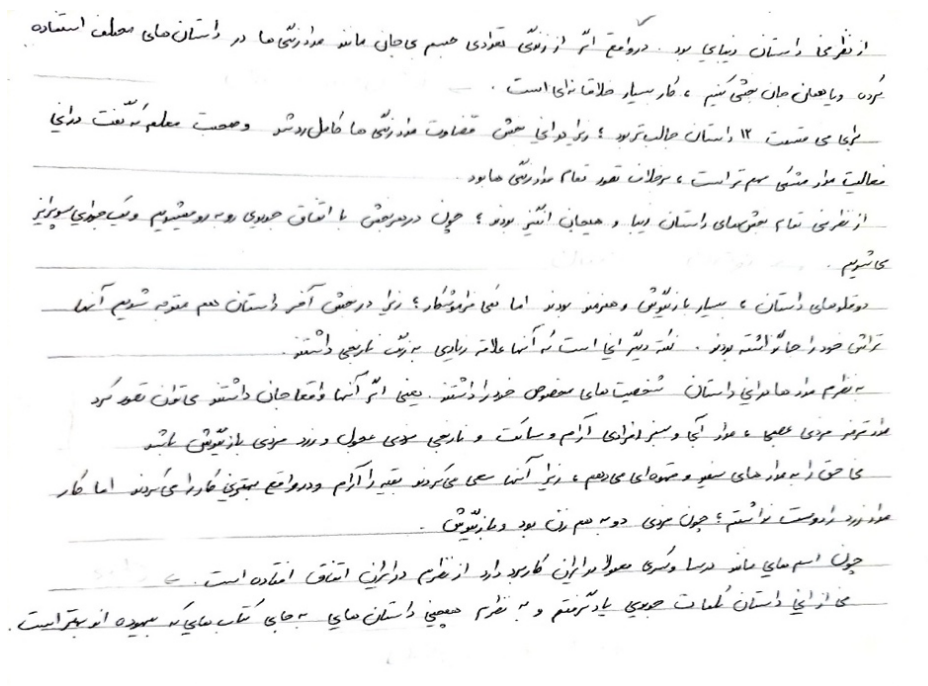 از نظر من داستان زیبایی بود. در واقع اگر از زندگی تعدادی جسم بی‌جان مانند مداد رنگی‌ها در داستان‌های مختلف استفاده
کرده و به همان جان بخشی کنیم، کار بسیار خلاقانه‌ای است.
برای من قسمت ۱۲ داستان جالب‌تر بود؛ زیرا در این بخش قضاوت مداد رنگی‌ها کامل رد شد و صحبت معلم که گفت در این
فعالیت مداد مشکی مهم‌تر است، برخلاف تصور تمام مداد رنگی‌ها بود.
از نظر من تمام بخش‌های داستان زیبا و هیجان انگیز بودند؛ چون در هر بخش با اتفاق جدیدی رو به رو می‌شدیم و یک جورایی سوپرایز
می‌شدیم.
دوقلوهای داستان، بسیار بازیگوش و هنرمند بودند اما کمی فراموشکار؛ زیرا در بخش آخر داستان هم متوجه شدیم آنها
تراش خود را جا گذاشته بودند. نکته دیگر این است که آنها علاقه زیادی به رنگ نارنجی داشتند.
به نظرم مداد ها در این داستان شخصیت‌های مخصوص خود را داشتند. یعنی اگر آنها واقعا جان داشتند می‌توان تصور کرد
مداد قرمز فردی عصبی، مداد آبی و سبز افرادی آرام و ساکت و نارنجی فردی عجول و زرد فردی بازیگوش باشد
من حق را به مداد های سفید و قهوه‌ای می‌دهم، زیرا آنها سعی می‌کردند بقیه را آرام و در واقع بهترین کار را می‌کردند اما کار
مداد زرد را دوست نداشتم؛ چون فردی دو به هم زن بود و بازیگوش.
چون اسم هایی مانند درسا و کسری معمولا در ایران کاربرد دارد از نظرم در ایران اتفاق افتاده است.
من از این داستان کلمات جدیدی یاد گرفتم و به نظرم همچین داستان هایی به جای کتاب هایی که بیهوده اند بهتر است.